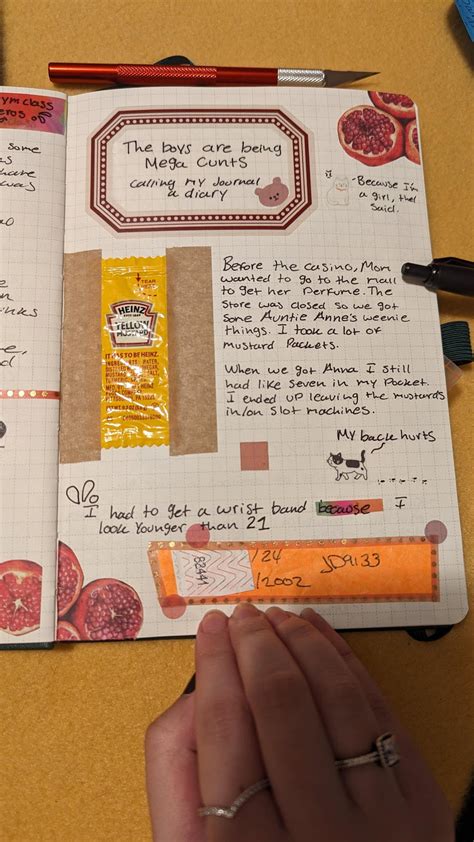 ym class
eros
some
as
hare
was
o
n
inks
re,
d
The boys are being
Mega Cunts
calling my Journal
a diary
Because I'm
a girl, they
said.
Before the casino, Mom
wanted to go to the mall
to get her perfume. The
Store was closed so we got
some Auntie Anne's weenie
things. I took a lot of
mustard Packets.
When we got Anna I still
had like seven in my pocket.
I ended up leaving the mustards
in/on slot machines.
TEAR
HEINZ
YELLOW
MUSTARD
IT HAS TO BE HEINZ.
My back hurts
I had to get a wrist band because I
look Younger than 21
82441
/24
/2002
JD9133